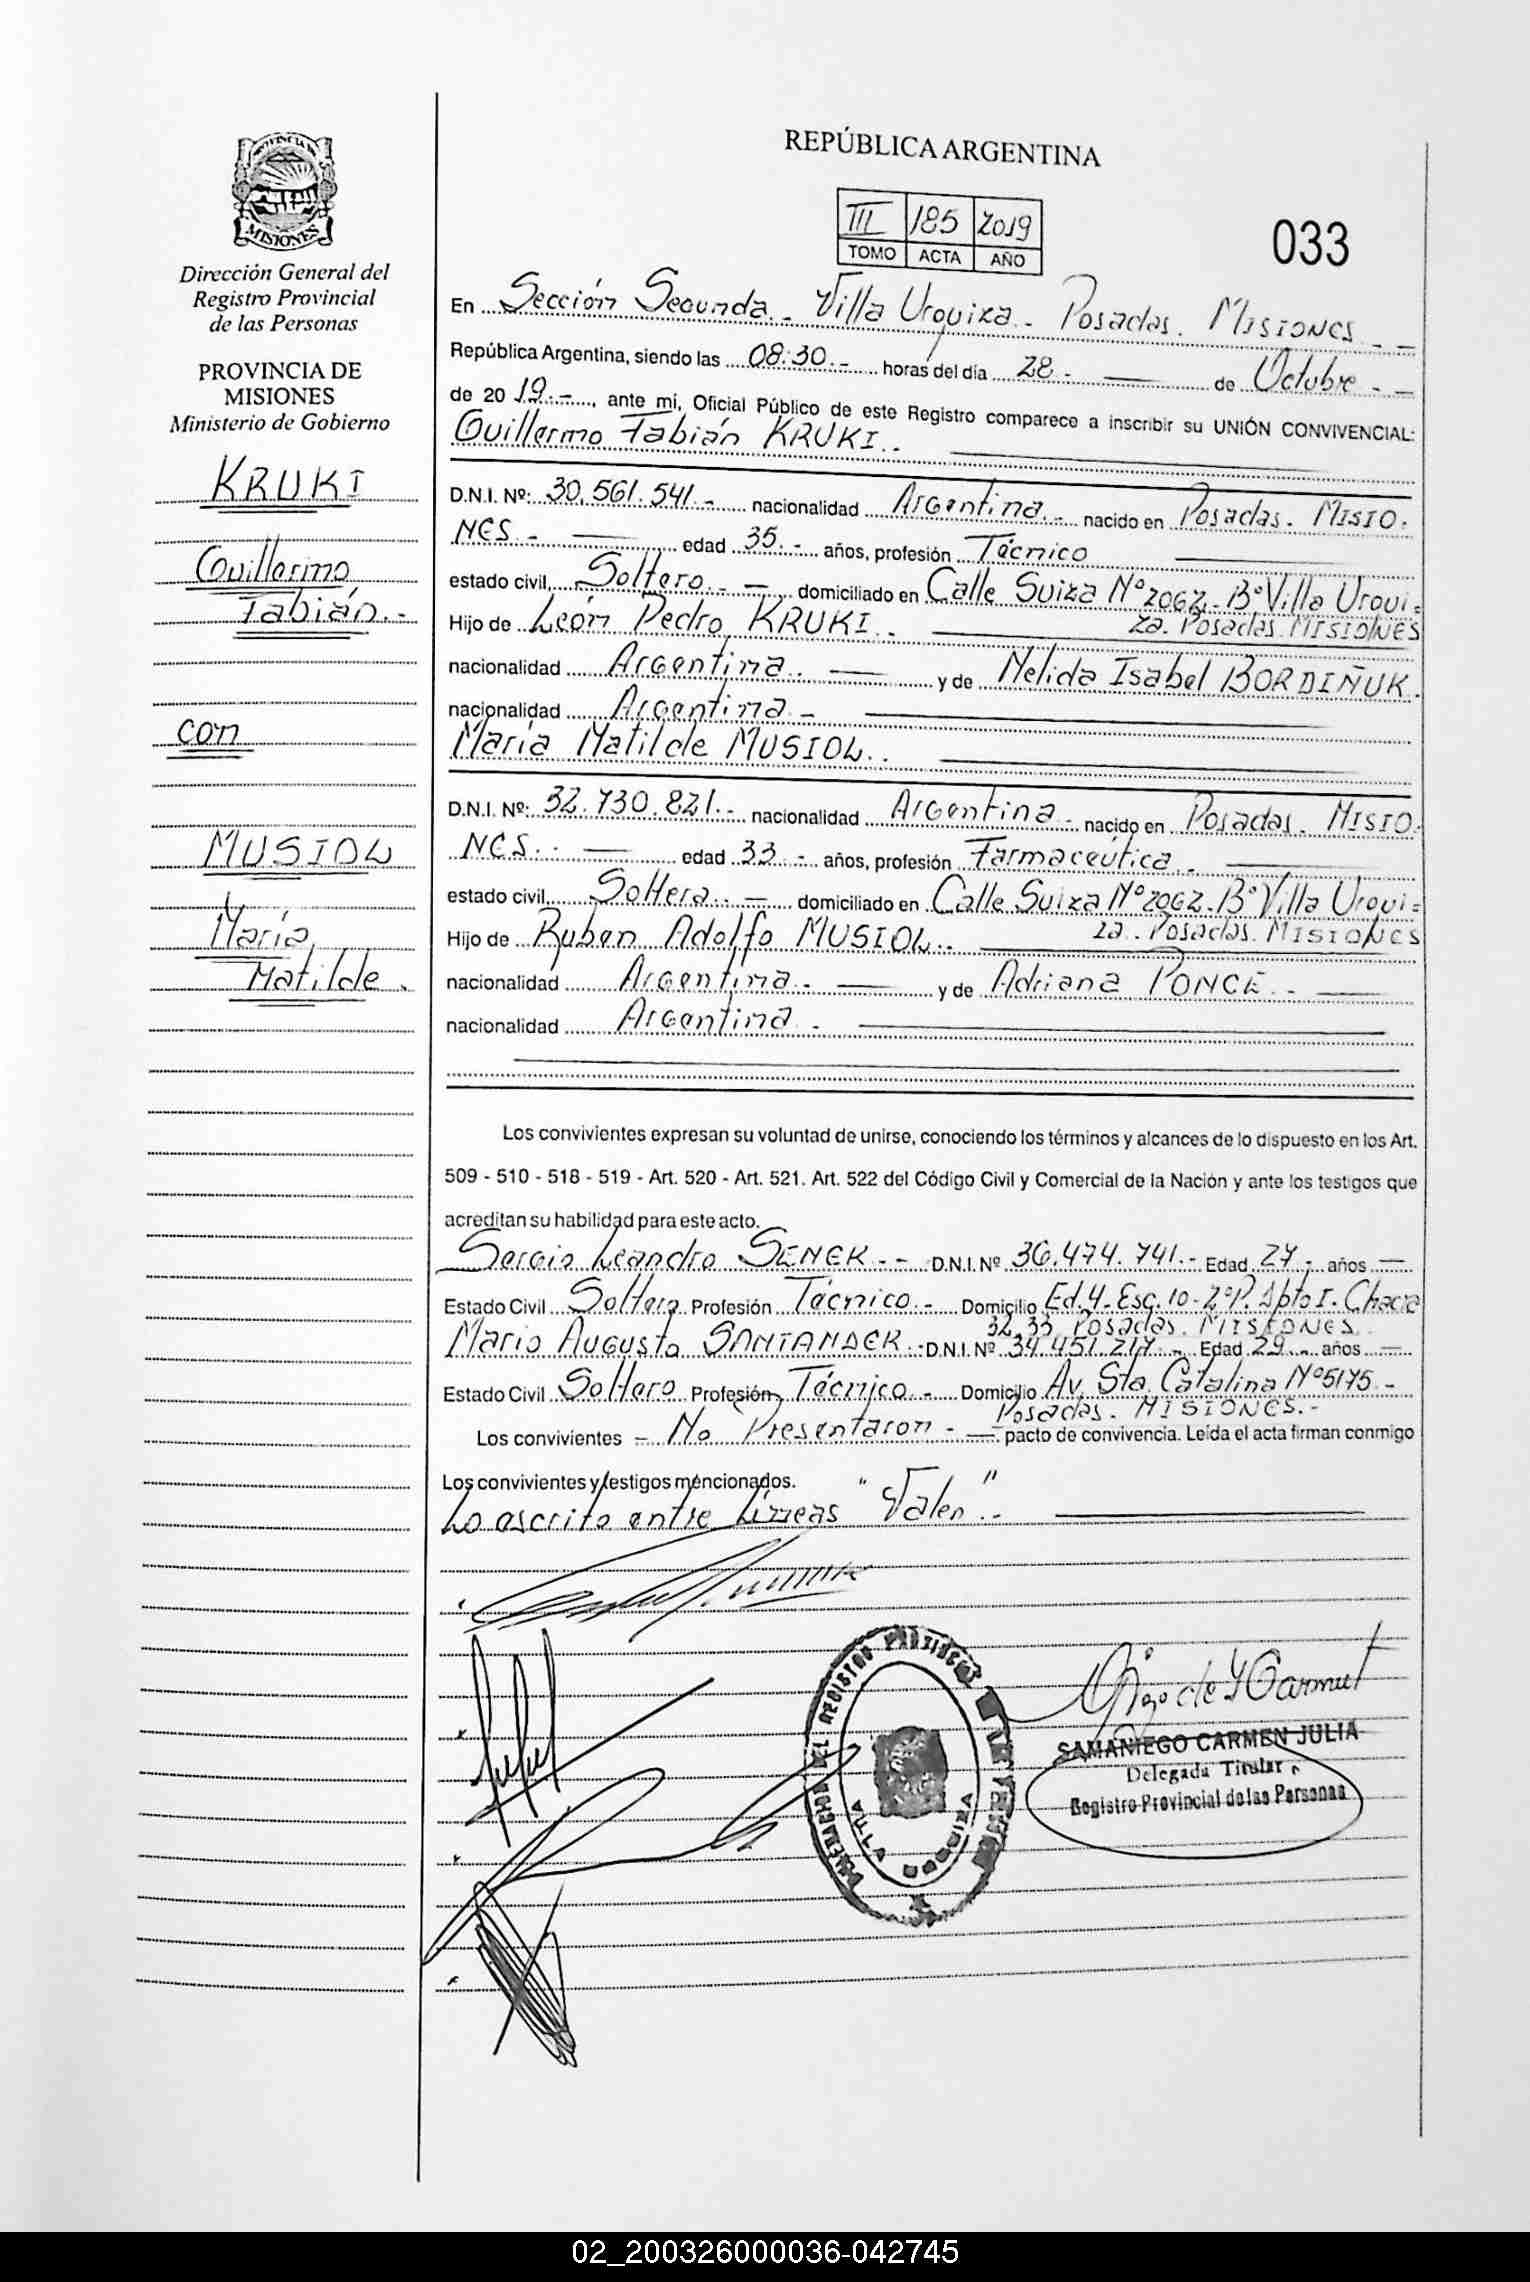 PROVINCIA DE
MISIONES
Dirección General del
Registro Provincial
de las Personas
PROVINCIA DE
MISIONES
Ministerio de Gobierno
KRUKI
Guillermo
Fabián.-
con
MUSIOW
María
Matilde.
REPÚBLICA ARGENTINA
III 185 2019
TOMO ACTA AÑO
033
En Sección Segunda.- Villa Urquiza.- Posadas. MISIONES.--
República Argentina, siendo las 08:30.- horas del día 28.- — de Octubre.--
de 2019.-, ante mí, Oficial Público de este Registro comparece a inscribir su UNIÓN CONVIVENCIAL:
Guillermo Fabián KRUKI..
D.N.I. Nº: 30.561.541.- nacionalidad Argentina.- nacido en Posadas. MISIO-
NES.- — edad 35.- años, profesión Técnico
estado civil Soltero.- — domiciliado en Calle Suiza Nº 2062.- Bº Villa Urqui=
za. Posadas. MISIONES
Hijo de León Pedro KRUKI..
nacionalidad Argentina.. — y de Nelida Isabel BORDIÑUK.
nacionalidad Argentina.-
María Matilde MUSIOW..
D.N.I. Nº: 32.730.821.- nacionalidad Argentina.- nacido en Posadas. MISIO-
NES.. — edad 33.- años, profesión Farmaceútica.-
estado civil Soltera.. — domiciliado en Calle Suiza Nº 2062.- Bº Villa Urqui=
za.. Posadas. MISIONES
Hijo de Ruben Adolfo MUSIOW..
nacionalidad Argentina.. — y de Adriana PONCE.. —
nacionalidad Argentina.-
Los convivientes expresan su voluntad de unirse, conociendo los términos y alcances de lo dispuesto en los Art.
509 - 510 - 518 - 519 - Art. 520 - Art. 521. Art. 522 del Código Civil y Comercial de la Nación y ante los testigos que
acreditan su habilidad para este acto.
Sergio Leandro SENEK.-- D.N.I. Nº 36.474.741.- Edad 27.- años —
Estado Civil Soltero Profesión Técnico.- Domicilio Ed. 4- Esc. 10- 2º P. Dpto I. Chacra
32.33 Posadas. MISIONES.
Mario Augusto SANTANDER.- D.N.I. Nº 34.451.217.- Edad 29.- años —
Estado Civil Soltero Profesión Técnico.- Domicilio Av. Sta. Catalina Nº 5175.-
Posadas. MISIONES.-
Los convivientes — No Presentaron - — pacto de convivencia. Leída el acta firman conmigo
Los convivientes y testigos mencionados.
Lo escrito entre Líneas "Valen"..
VILLA URQUIZA
SAMANIEGO CARMEN JULIA
Delegada Titular
Registro Provincial de las Personas
02_200326000036-042745